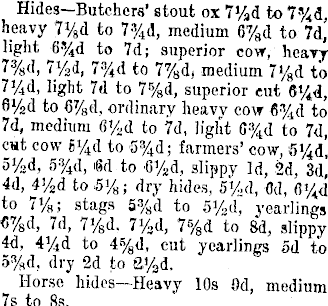 Hides—Butchers' stout ox 7½d to 7¾d,
heavy 7⅛d to 7¾d, medium 6⅞d to 7d,
light 6¾d to 7d; superior cow, heavy
7⅜d, 7½d, 7¾d to 7⅞d, medium 7⅛d to
7¼d, light 7d to 7⅝d, superior cut 6¼d,
6½d to 6⅞d, ordinary heavy cow 6¾d to
7d, medium 6½d to 7d, light 6¾d to 7d,
cut cow 5¼d to 5¾d; farmers' cow, 5¼d,
5½d, 5¾d, 6d to 6½d, slippy 1d, 2d, 3d,
4d, 4½d to 5⅛; dry hides, 5½d, 6d, 6¼d
to 7⅛; stags 5⅜d to 5½d, yearlings
6⅞d, 7d, 7⅛d. 7½d, 7⅝d to 8d, slippy
4d, 4¼d to 4⅝d, cut yearlings 5d to
5⅜d, dry 2d to 2½d.
Horse hides—Heavy 10s 9d, medium
7s to 8s.